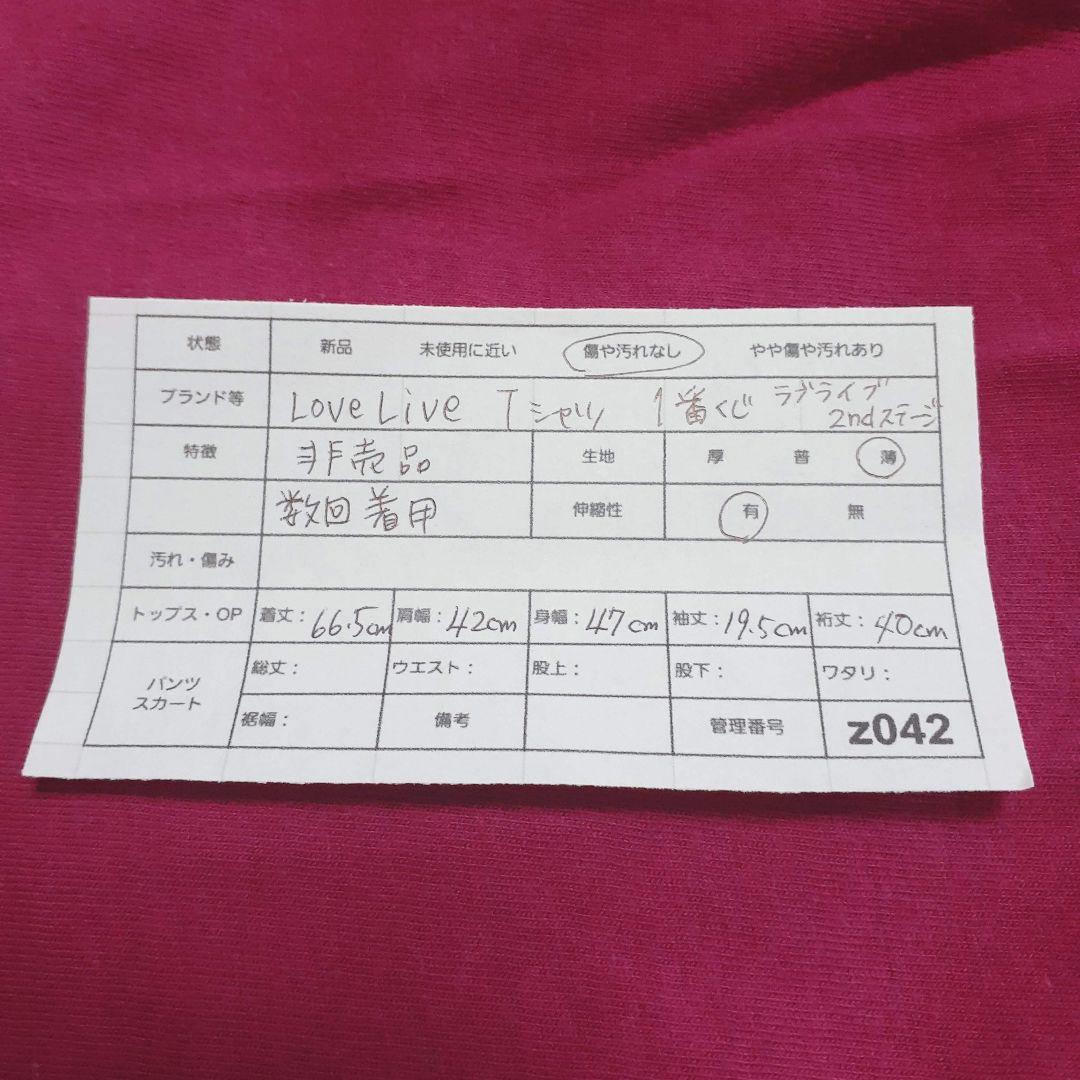 状態 新品 未使用に近い 傷や汚れなし やや傷や汚れあり
ブランド等 LoveLive Tシャツ 1番くじ ラブライブ 2ndステージ
特徴 非売品 生地 厚 普 薄
数回着用 伸縮性 有 無
汚れ・傷み
トップス・OP 着丈：66.5cm 肩幅：42cm 身幅：47cm 袖丈：19.5cm 裄丈：40cm
パンツ スカート 総丈： ウエスト： 股上： 股下： ワタリ：
裾幅： 備考 管理番号 z042